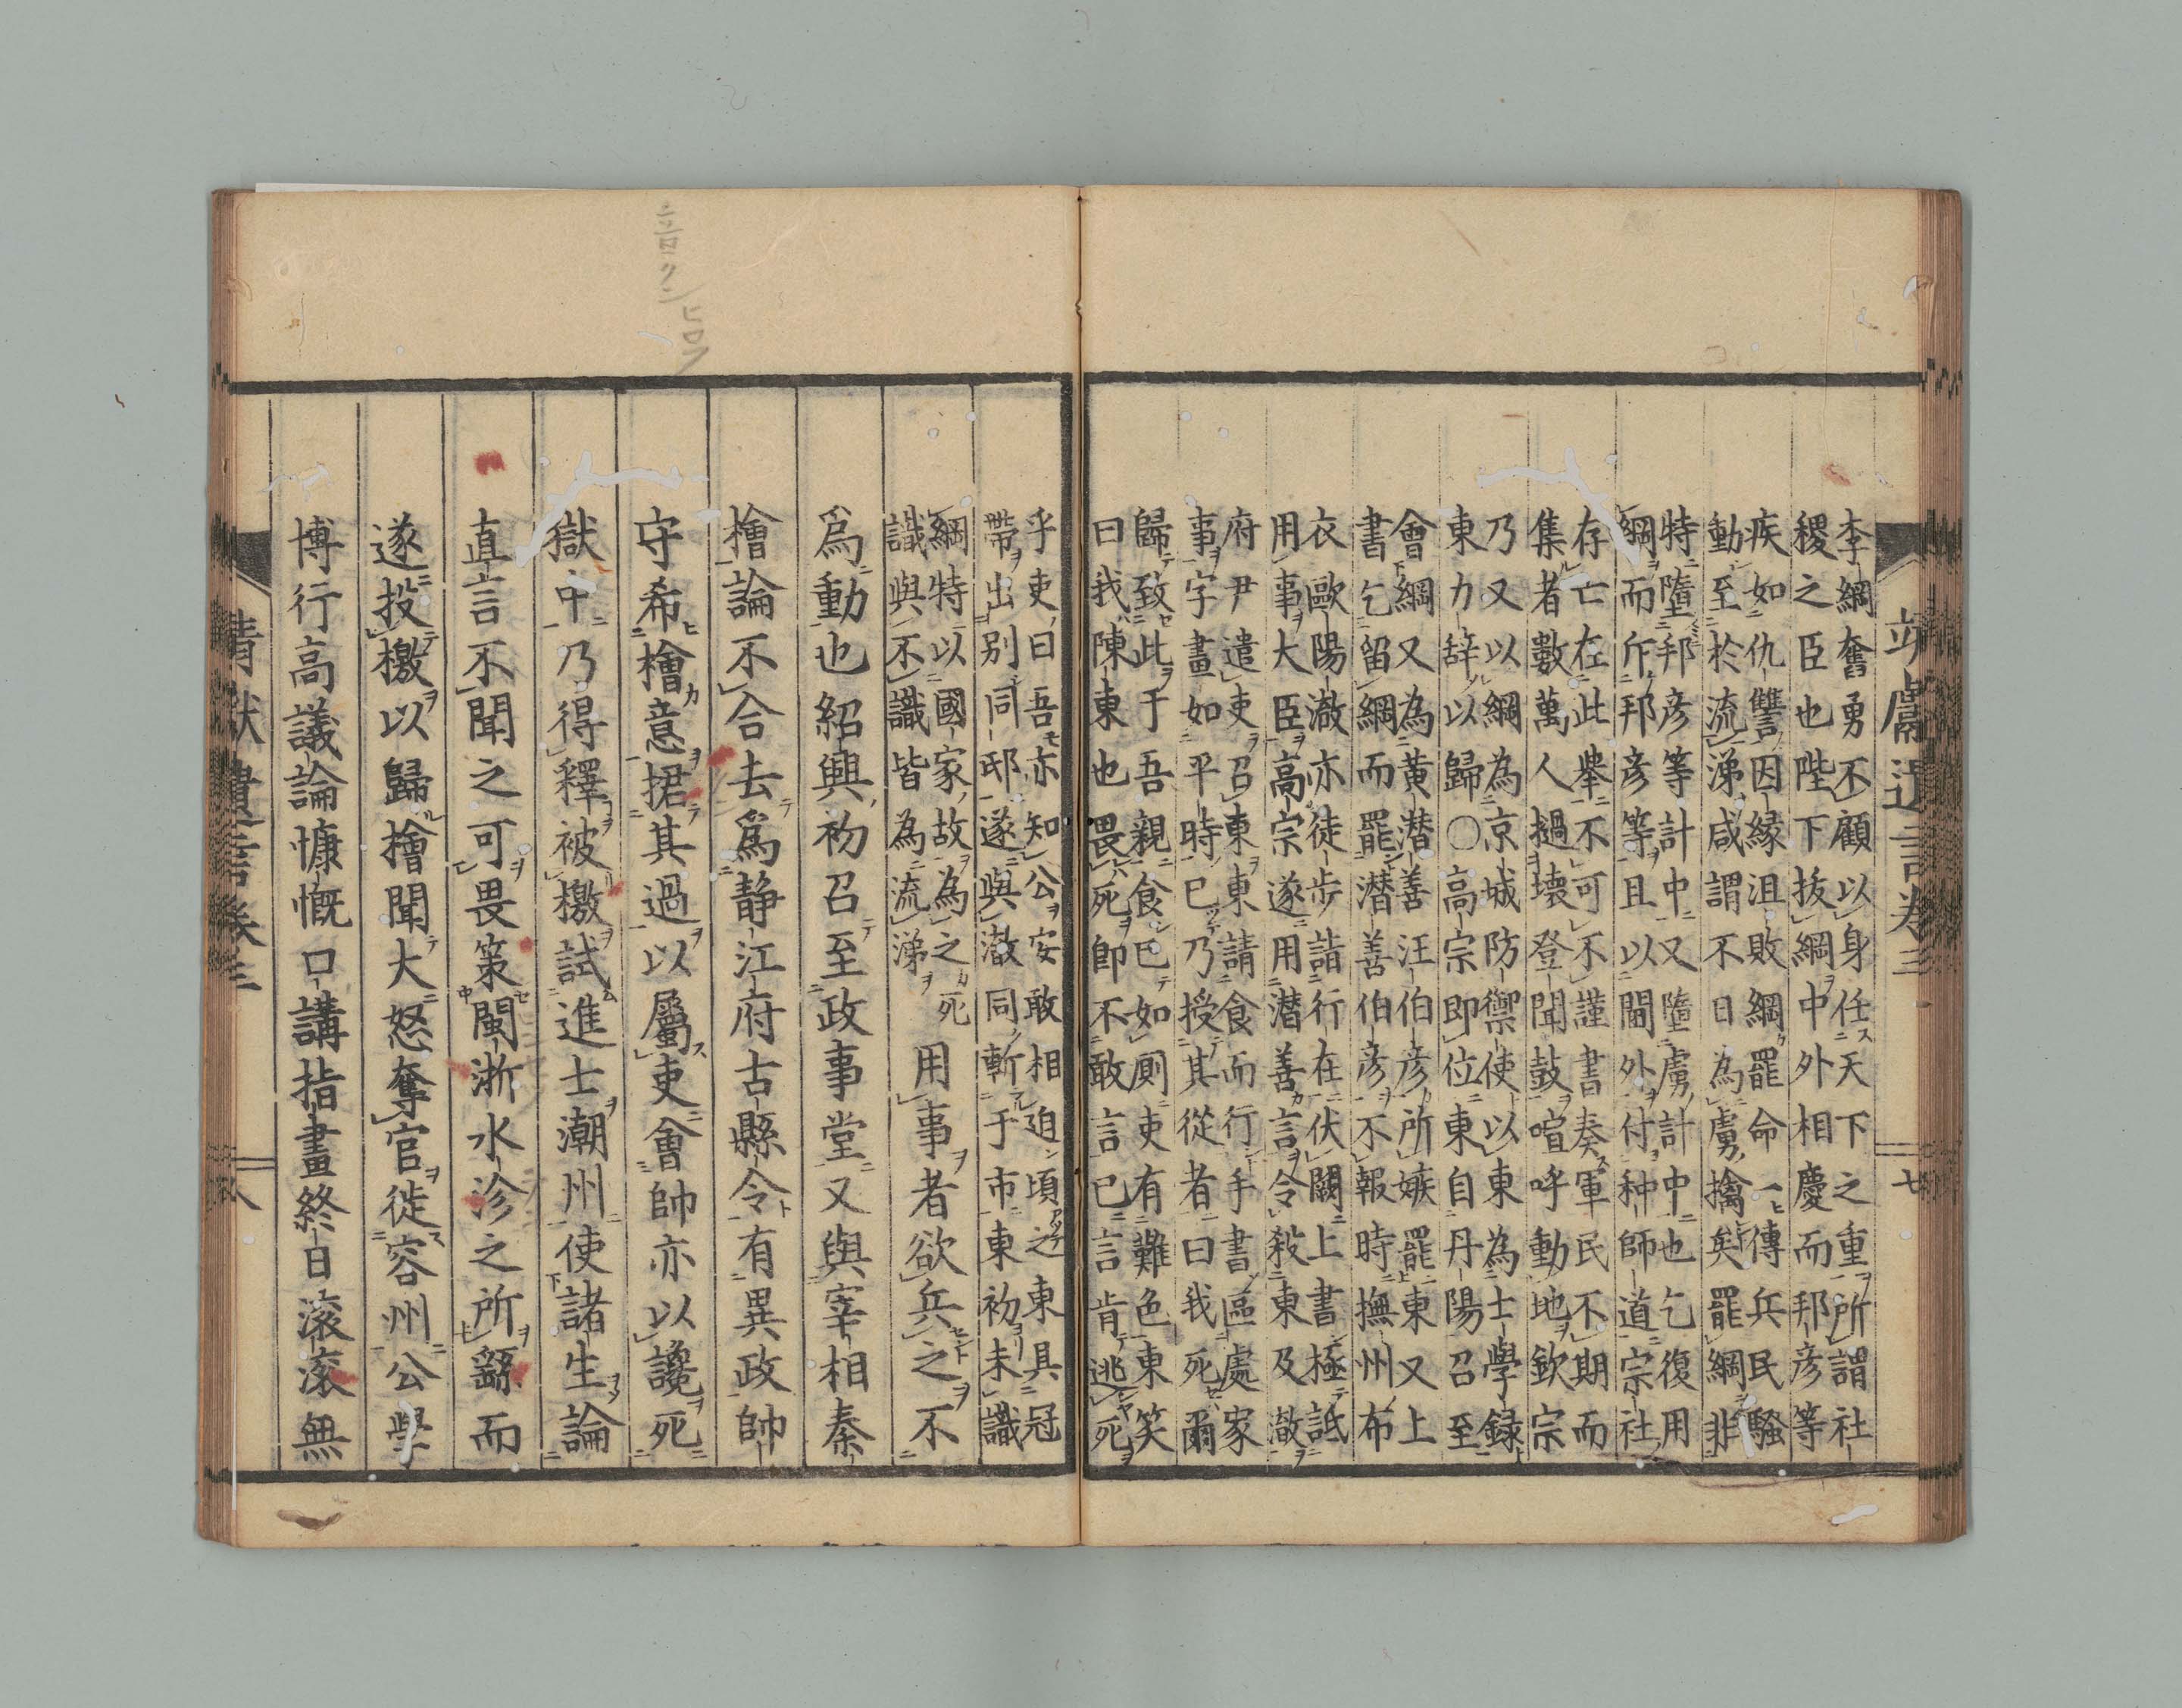 李綱奮勇不顧以身任天下之重所謂社
稷之臣也陛下抜綱中外相慶而邦彦等
疾如仇讐因縁沮敗綱罷命一傳兵民騒
動至於流涕咸謂不日為虜擒矣罷綱非
特墮邦彦等計中又墮虜計中也乞復用
綱而斥邦彦等且以閫外付种師道宗社
存亡在此舉不可不謹書奏軍民不期而
集者數萬人撾壊登聞鼓喧呼動地欽宗
乃又以綱為京城防禦使以東為士學録
東力辞以歸〇高宗即位東自丹陽召至
會綱又為黄潜善汪伯彦所嫉罷東又上
書乞留綱而罷潜善伯彦不報時撫州布
衣歐陽澈亦徒歩詣行在伏闕上書極詆
用事大臣高宗遂用潜善言令殺東及澈
府尹遣吏召東東請食而行手書區處家
事字畫如平時已乃授其從者曰我死爾
歸致此于吾親食已如厠吏有難色東笑
曰我陳東也畏死即不敢言已言肯逃死
乎吏曰吾亦知公安敢相迫頃之東具冠
帶出別同邸遂與澈同斬于市東初未識
綱特以國家故為之死
識與不識皆為流涕
用事者欲兵之不
爲動也紹興初召至政事堂又與宰相秦
檜論不合去爲静江府古縣令有異政帥
守希檜意捃其過以屬吏會帥亦以讒死
獄中乃得釋被檄試進士潮州使諸生論
直言不聞之可畏策閩浙水沴之所繇而
遂投檄以歸檜聞大怒奪官徙容州公學
博行高議論慷慨口講指畫終日滚滚無